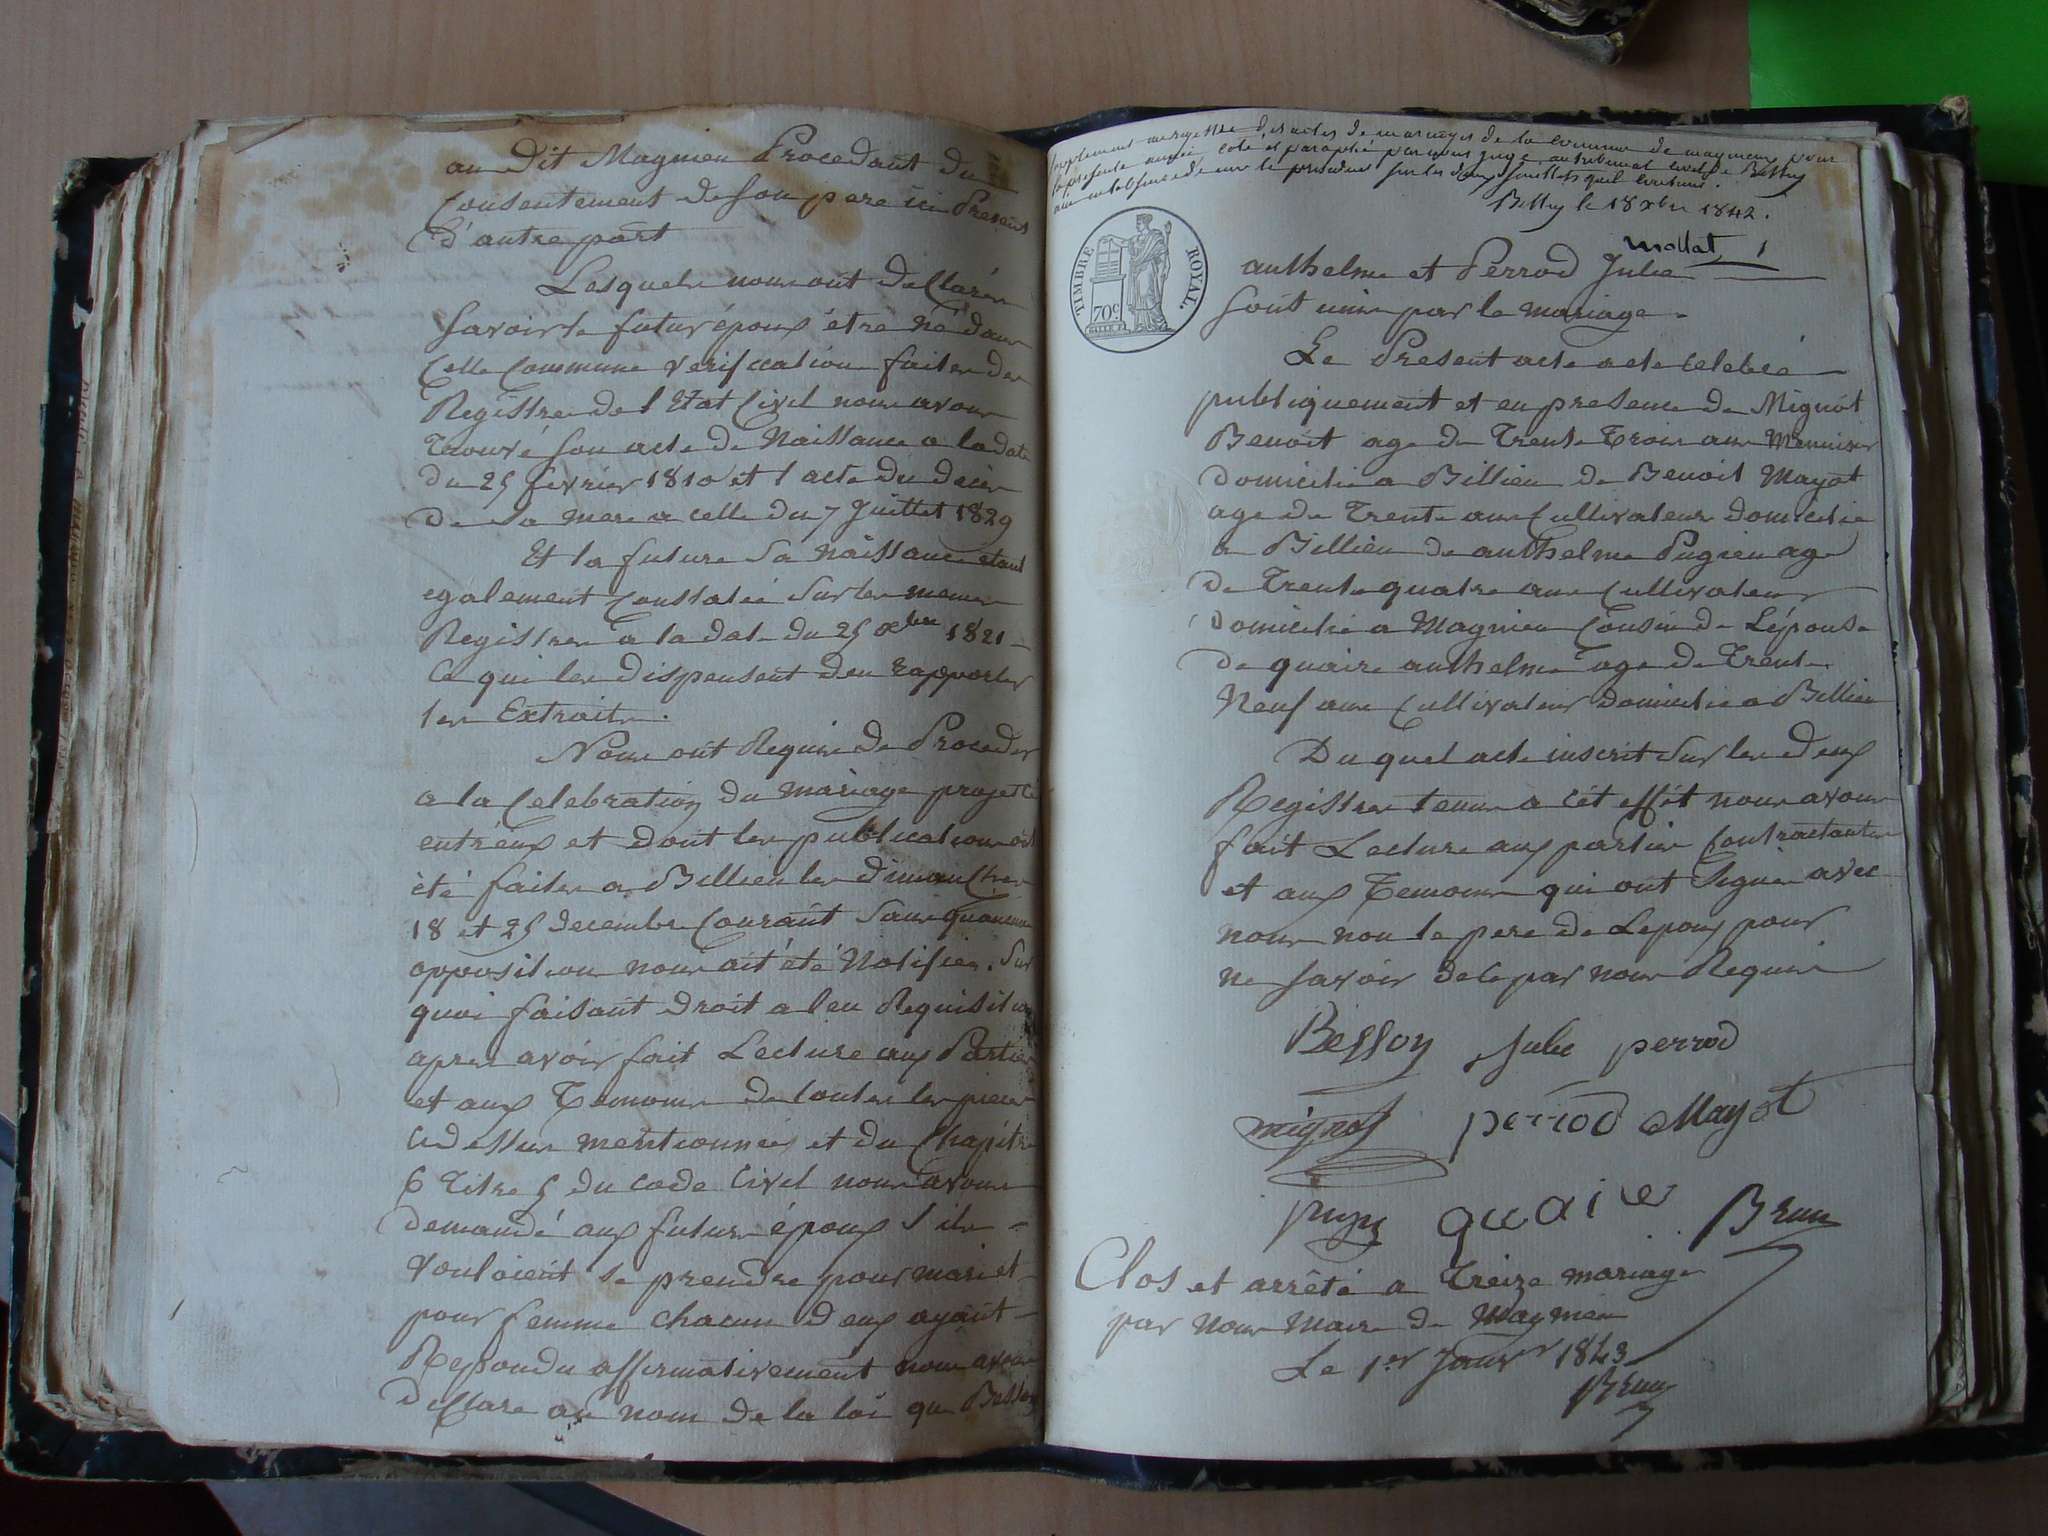 au dit Magnieu Procedant du
Consentement de son pere ici Present
d'autre part
Lesquels nous ont déclarés
Savoir le futur époux être né dans
Cette Commune verification faites des
Registres de l'Etat Civil nous avons
trouvé son acte de Naissance a la date
du 25 février 1810 et l acte du décès
de Sa mere a celle du 7 Juillet 1829
Et la future Sa Naissance étant
egalement Constatée Sur les memes
Registres a la date du 25 xbre 1821 -
Ce qui les dispensent d'en rapporter
les Extraits.
Nous ont Requis de Proceder
a la Celebration du mariage projetté
entréux et dont les publications ont
été faites a Billieu les dimanches
18 et 25 decembre Courant Sans qu'aucune
opposition nous ait été Notifiée. Sur
quoi faisant droit a leu Requisition
apres avoir fait Lecture aux Parties
et aux Temoins de toutes les pieces
cidessus mentionnées et du Chapitre
6 titre 5 du code Civil nous avons
demandé aux futurs époux S'ils -
Vouloient se prendre pour mari et
pour femme chacun d'eux ayant -
Repondu affirmativement nous avons
déclare au nom de la loi que Besson
Supplement au registre des actes de mariages de la commune de magnieu pour
la présente année coté et paraphé par nous juge au tribunal civil de Belley
sur les deux feuillets quil contient.
Belley le 18 xbre 1842.
Mollat 1
TIMBRE ROYAL.
70c
anthelme et Perrod Julie
Sont unis par le mariage.
Le Present acte a ete célébré
publiquement et en presence de Mignot
Benoit age de trente trois ans Menuisier
domicilie a Billieu de Benoit Mayot
age de trente ans Cultivateur domicilie
a Billieu de anthelme Pugieu age
de trente quatre ans Cultivateur
domicilie a Magnieu Cousin de L'épouse
de quaire anthelme age de trente
Neuf ans Cultivateur domicilie a Billieu
Du quel acte inscrit Sur les deux
Registres tenus a cét effét nous avons
fait Lecture aux parties Contractantes
et aux Temoins qui ont Signés avec
nous non le pere de Lepoux pour
ne Savoir de ce par nous Requis
Besson Julie perrod
mignot perrod Mayot
quaire Brun
Clos et arrêté a treize mariages
par nous Maire de Magnieu
Le 1er Janvr 1843
Brun